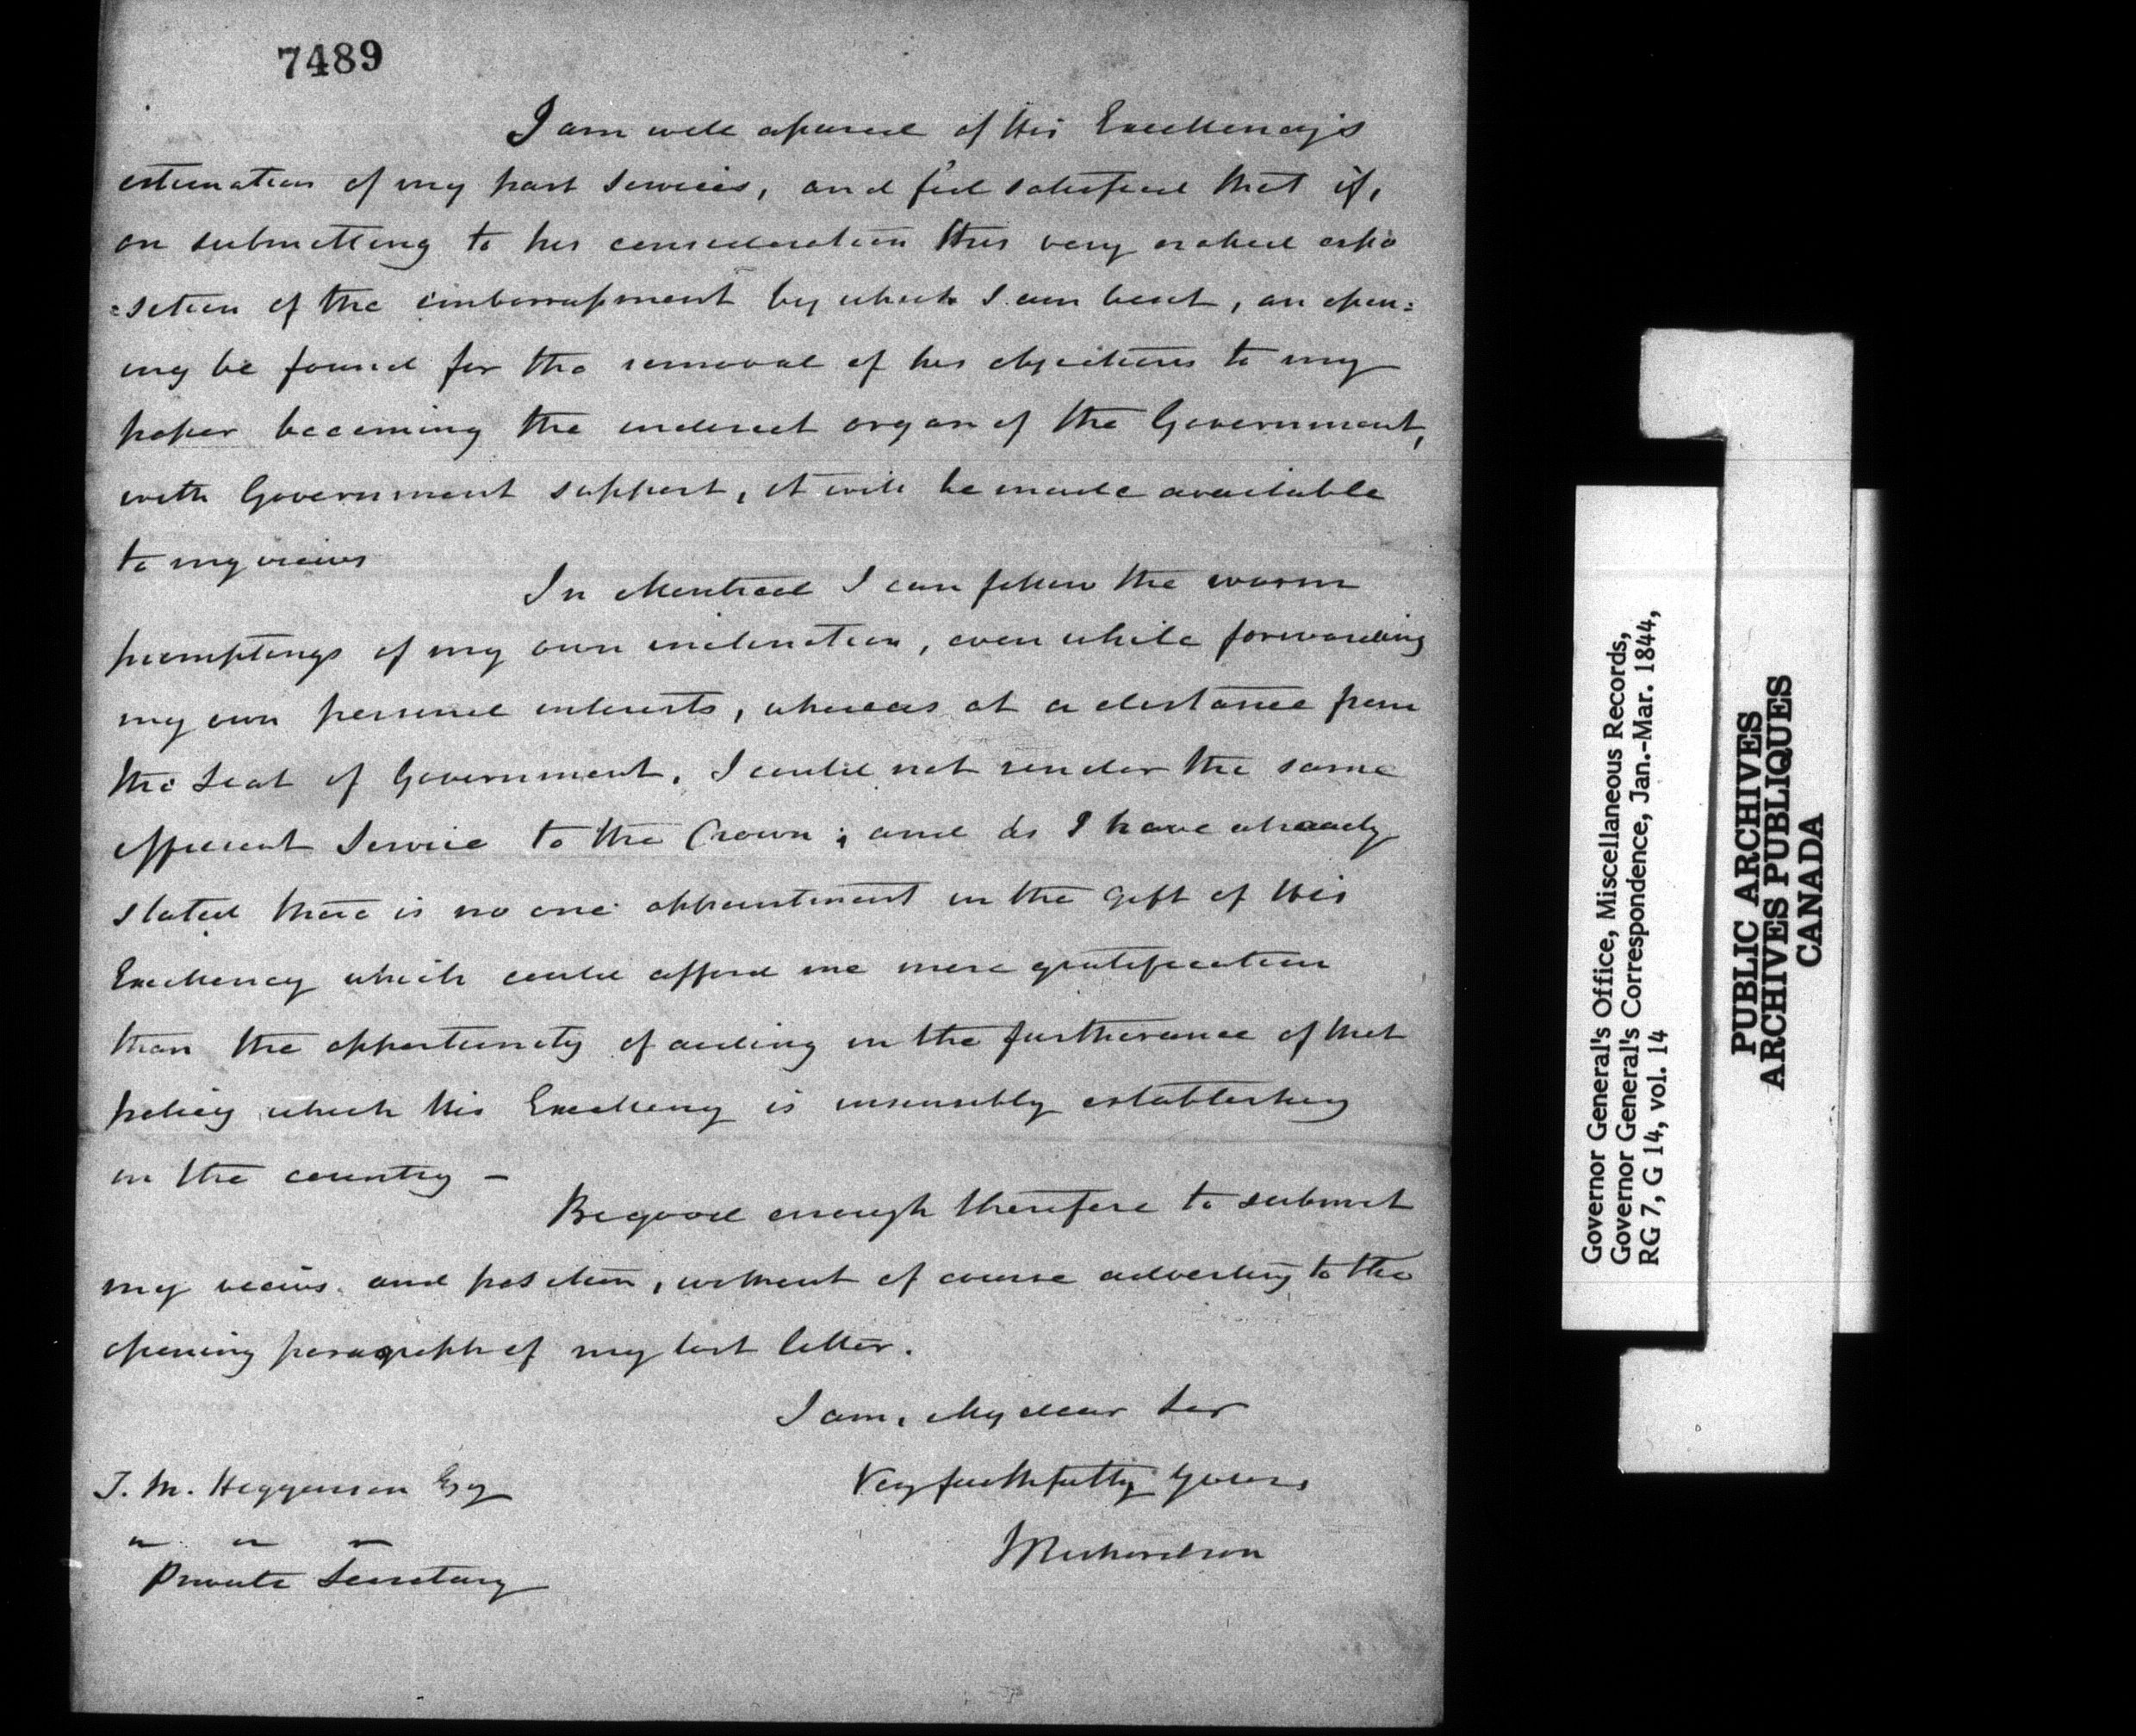 7489
I am well assured of His Excellency's
estimation of my past services, and feel satisfied that if,
on submitting to his consideration this very naked expo
=sition of the embarrassment by which I am beset, an open=
ing be found for the removal of his objections to my
paper becoming the indirect organ of the Government,
with Government support, it will be made available
to my views
In Montreal I can follow the warm
promptings of my own inclination, even while forwarding
my own personal interests, whereas at a distance from
the Seat of Government, I could not render the same
efficient Service to the Crown; and as I have already
stated there is no one appointment in the gift of His
Excellency which could afford me more gratification
than the opportunity of aiding in the furtherance of that
policy which His Excellency is insensibly establishing
in the country –
Be good enough therefore to submit
my views and position, without of course adverting to the
opening paragraph of my last letter.
I am, My dear Sir
Very faithfully Yours
JRichardson
J. M. Higginson Esq
Private Secretary
Governor General's Office, Miscellaneous Records,
Governor General's Correspondence, Jan.-Mar. 1844,
RG 7, G 14, vol. 14
PUBLIC ARCHIVES
ARCHIVES PUBLIQUES
CANADA